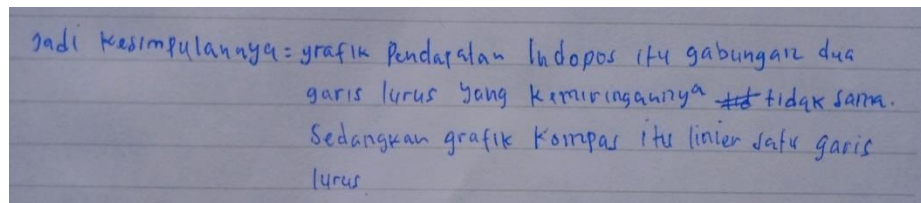 Jadi kesimpulannya = grafik Pendapatan Indopos itu gabungan dua
garis lurus yang kemiringannya tidak sama.
Sedangkan grafik Kompas itu linier satu garis
lurus